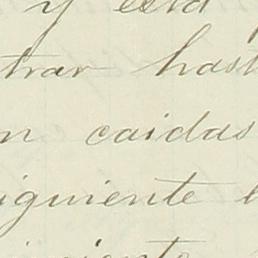 y está
trar hast
n caidas
iguiente
iento